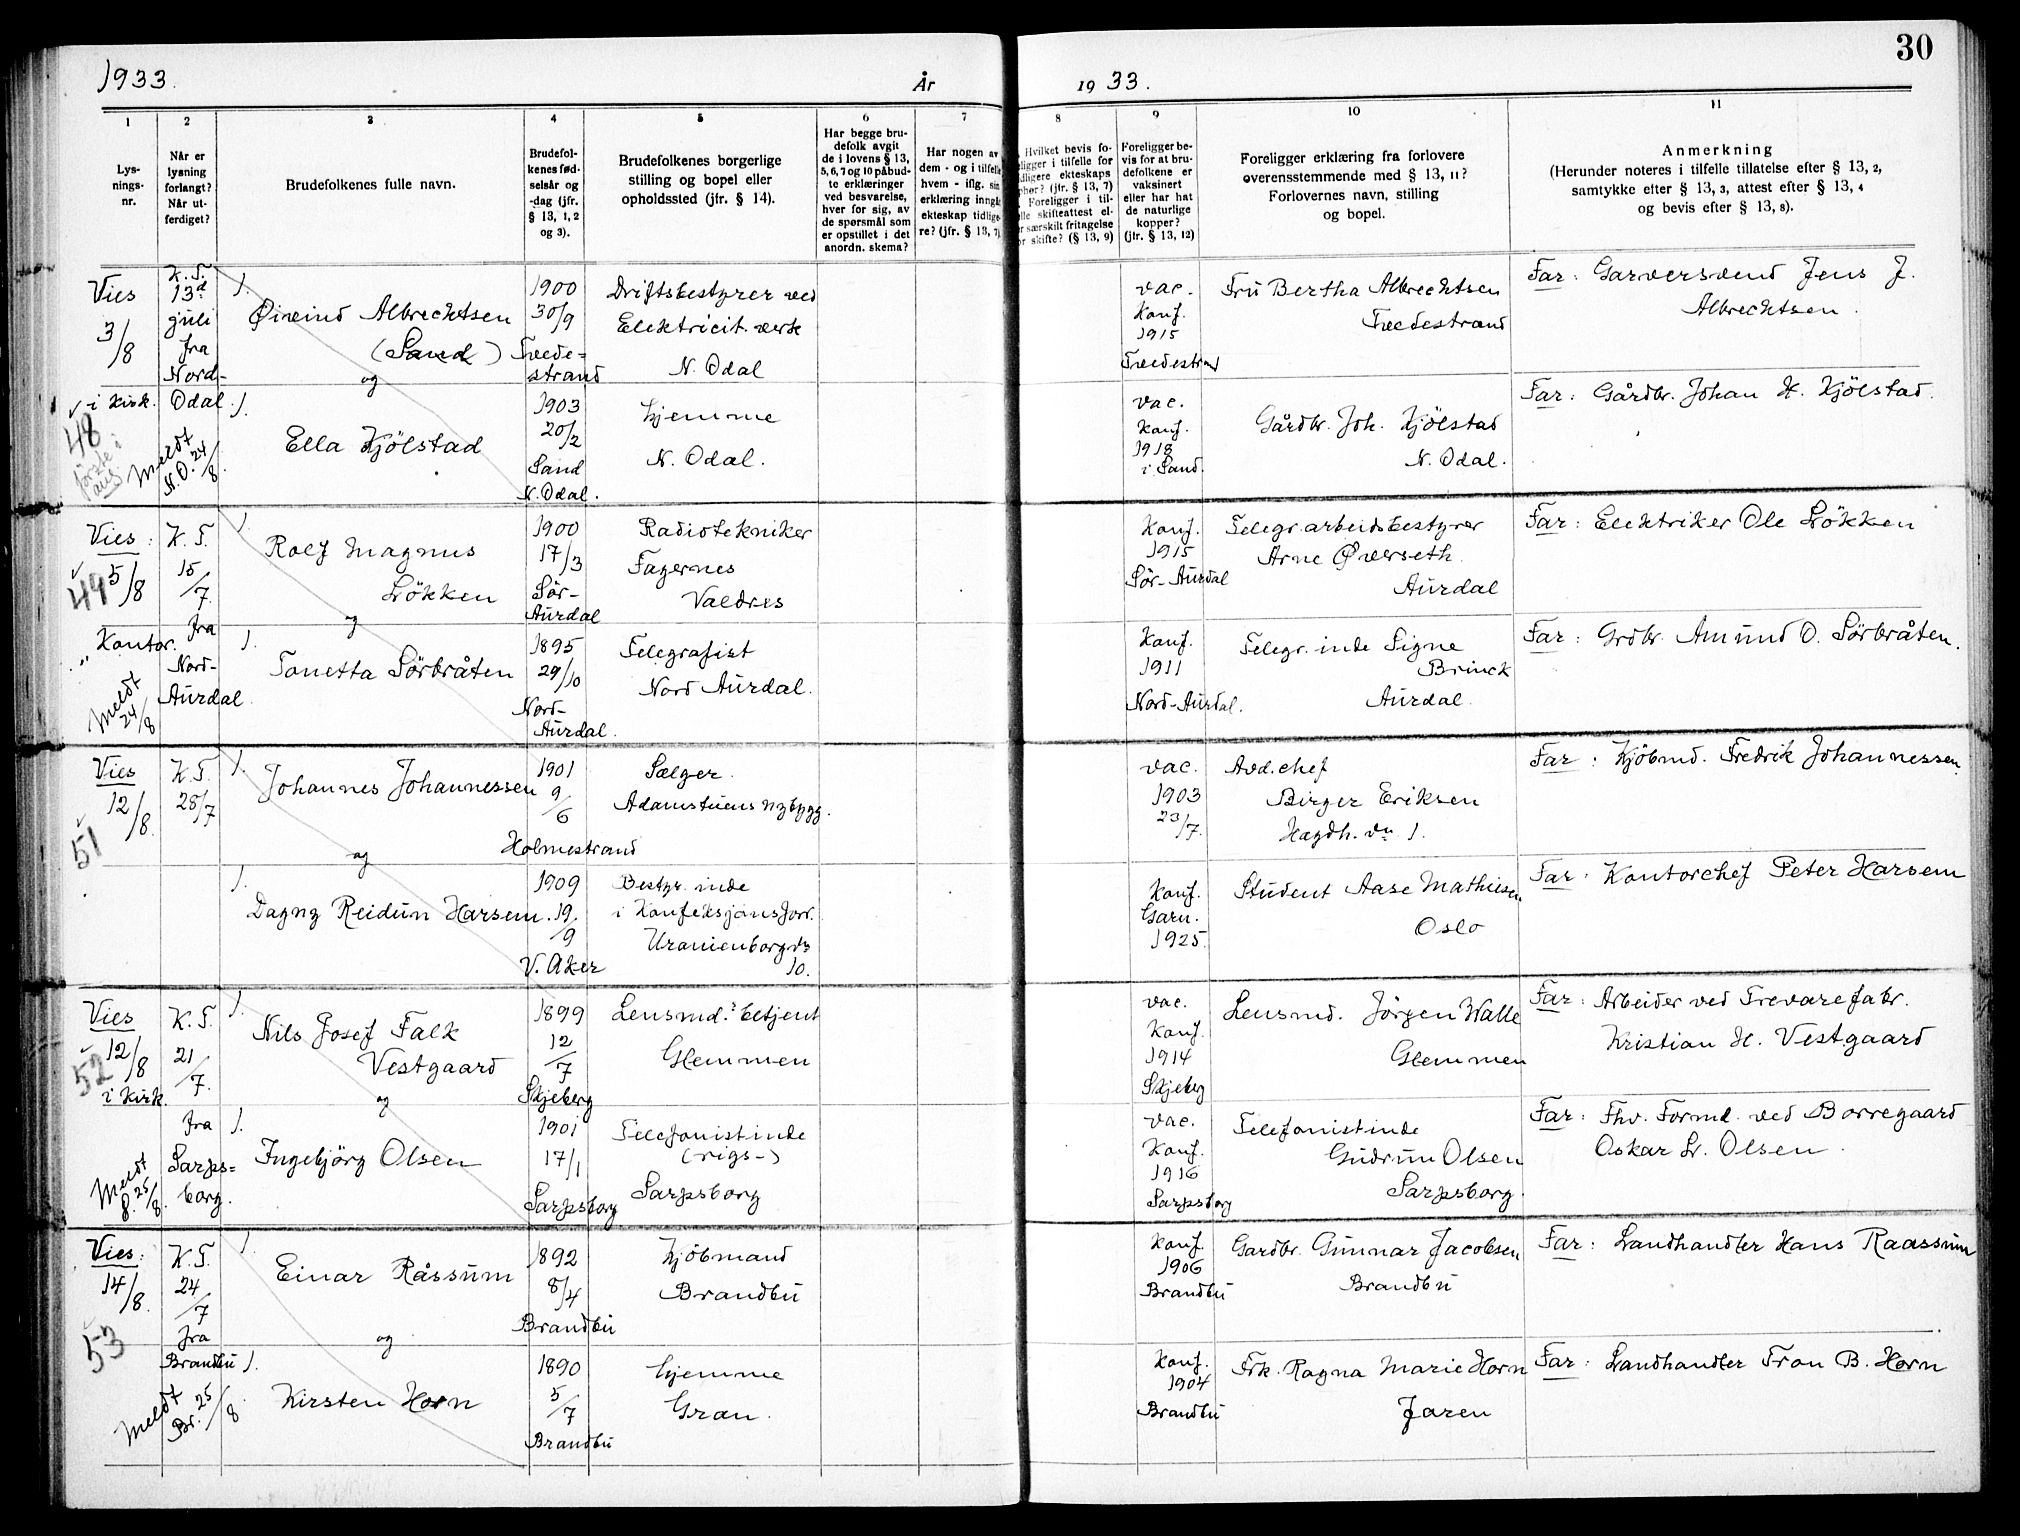 30
1933.
År
19 33.
1
2
3
4
5
6
7
8
9
10
11
Lys-
nings-
nr.
Når er
lysning
forlangt?
Når ut-
ferdiget?
Brudefolkenes fulle navn.
Brudefol-
kenes fød-
selsår og
-dag (jfr.
§ 13, 1, 2
og 3).
Brudefolkenes borgerlige
stilling og bopel eller
opholdssted (jfr. § 14).
Har begge bru-
defolk avgit
de i lovens § 13,
5, 6, 7 og 10 påbud-
te erklæringer
ved besvarelse,
hver for sig, av
de spørsmål som
er opstillet i det
anordn. skema?
Har nogen av
dem - og i tilfelle
hvem - iflg. sin
erklæring inngått
ekteskap tidlige-
re? (jfr. § 13, 7)
Hvilket bevis fo-
religger i tilfelle for
tidligere ekteskaps
ophør? (jfr. § 13, 7)
Foreligger i til-
felle skifteattest el-
ler særskilt fritagelse
for skifte? (§ 13, 9)
Foreligger be-
vis for at bru-
defolkene er
vaksinert
eller har hat
de naturlige
kopper?
(jfr. § 13, 12)
Foreligger erklæring fra forlovere
overensstemmende med § 13, 11?
Forlovernes navn, stilling
og bopel.
Anmerkning
(Herunder noteres i tilfelle tillatelse efter § 13, 2,
samtykke efter § 13, 3, attest efter § 13, 4
og bevis efter § 13, 8).
Vies
3/8
i kirk.
48
K. T.
13d
juli
fra
Nord-
Odal.
Meldt
N.O. 24/8.
1.
Øivind Albrechtsen
(Sand)
og
1900
30/9
Tvede-
strand
Driftsbestyrer ved
Elektricit. verk
N. Odal
vac.
Konf.
1915
Tvedestrand
Fru Bertha Albrechtsen
Tvedestrand
Far: Garversvend Jens J.
Albrechtsen.
1.
Ella Kjölstad
1903
20/2
Sand
N. Odal.
hjemme
N. Odal.
vac.
Konf.
1918
i Sand.
Gårdbr. Joh. Kjölstad
N. Odal.
Far: Gårdbr. Johan H. Kjölstad.
Vies:
5/8
49
" Kontor.
K. T.
15/7.
fra
Nord-
Aurdal.
Meldt
24/8
1.
Rolf Magnus
Lökken
og
1900
17/3
Sør-
Aurdal
Radiotekniker
Fagernes
Valdres
Konf.
1915
Sør-Aurdal
Telegr.arbeidsbestyrer
Arne Øverseth.
Aurdal
Far: Elektriker Ole Lökken
1.
Tonetta Sörbråten
1895
29/10
Nord-
Aurdal.
Telegrafist
Nord Aurdal.
Konf.
1911
Nord-Aurdal.
Telegr.inde Signe
Brinck
Aurdal.
Far: Grdbr. Amund O. Sörbråten.
Vies
12/8.
51
K. T.
28/7
1.
Johannes Johannessen
og
1901
9/6
Holmestrand
Sælger.
Adamstuens nybygg.
vac.
1903
23/7.
Avd.chef
Birger Eriksen
Hagdh. vn 1.
Far: Kjöbmd. Fredrik Johannessen.
1.
Dagny Reidun Harsem.
1909
19/9
V. Aker
Bestyr.inde
i Konfeksjonsforr.
Uranienborgv.
10.
Konf.
Garn.
1925.
Student Aase Mathiesen
Oslo
Far: Kontorchef Peter Harsem
Vies
12/8
52
i kirk.
K. T.
21/7.
fra
Sarps-
borg.
Meldt
S. 25/8.
1.
Nils Josef Falk
Vestgaard
og
1899
12/7
Skjeberg
Lensmd.betjent
Glemmen
vac.
Konf.
1914
Skjeberg
Lensmd. Jörgen Walle
Glemmen
Far: Arbeider ved Trevarefabr.
Kristian H. Vestgaard
1.
Ingebjörg Olsen
1901
17/1
Sarpsborg
Telefonistinde
(rigs-)
Sarpsborg
vac.
Konf.
1916
Sarpsborg
Telefonistinde
Gudrun Olsen
Sarpsborg.
Far: Fhv. Formd. ved Borregaard
Oskar L. Olsen.
Vies:
14/8.
53
K. T.
24/7
fra
Brandbu
Meldt
Br. 25/8.
1.
Einar Råssum
og
1892
8/4
Brandbu
Kjöbmand
Brandbu
Konf.
1906
Brandbu
Gardbr. Gunnar Jacobsen
Brandbu
Far: Landhandler Hans Raassum
1.
Kirsten Horn
1890
5/7
Brandbu
hjemme
Gran.
Konf.
1904
Brandbu
Frk. Ragna Marie Horn
Jaren
Far: Landhandler Tron B. Horn